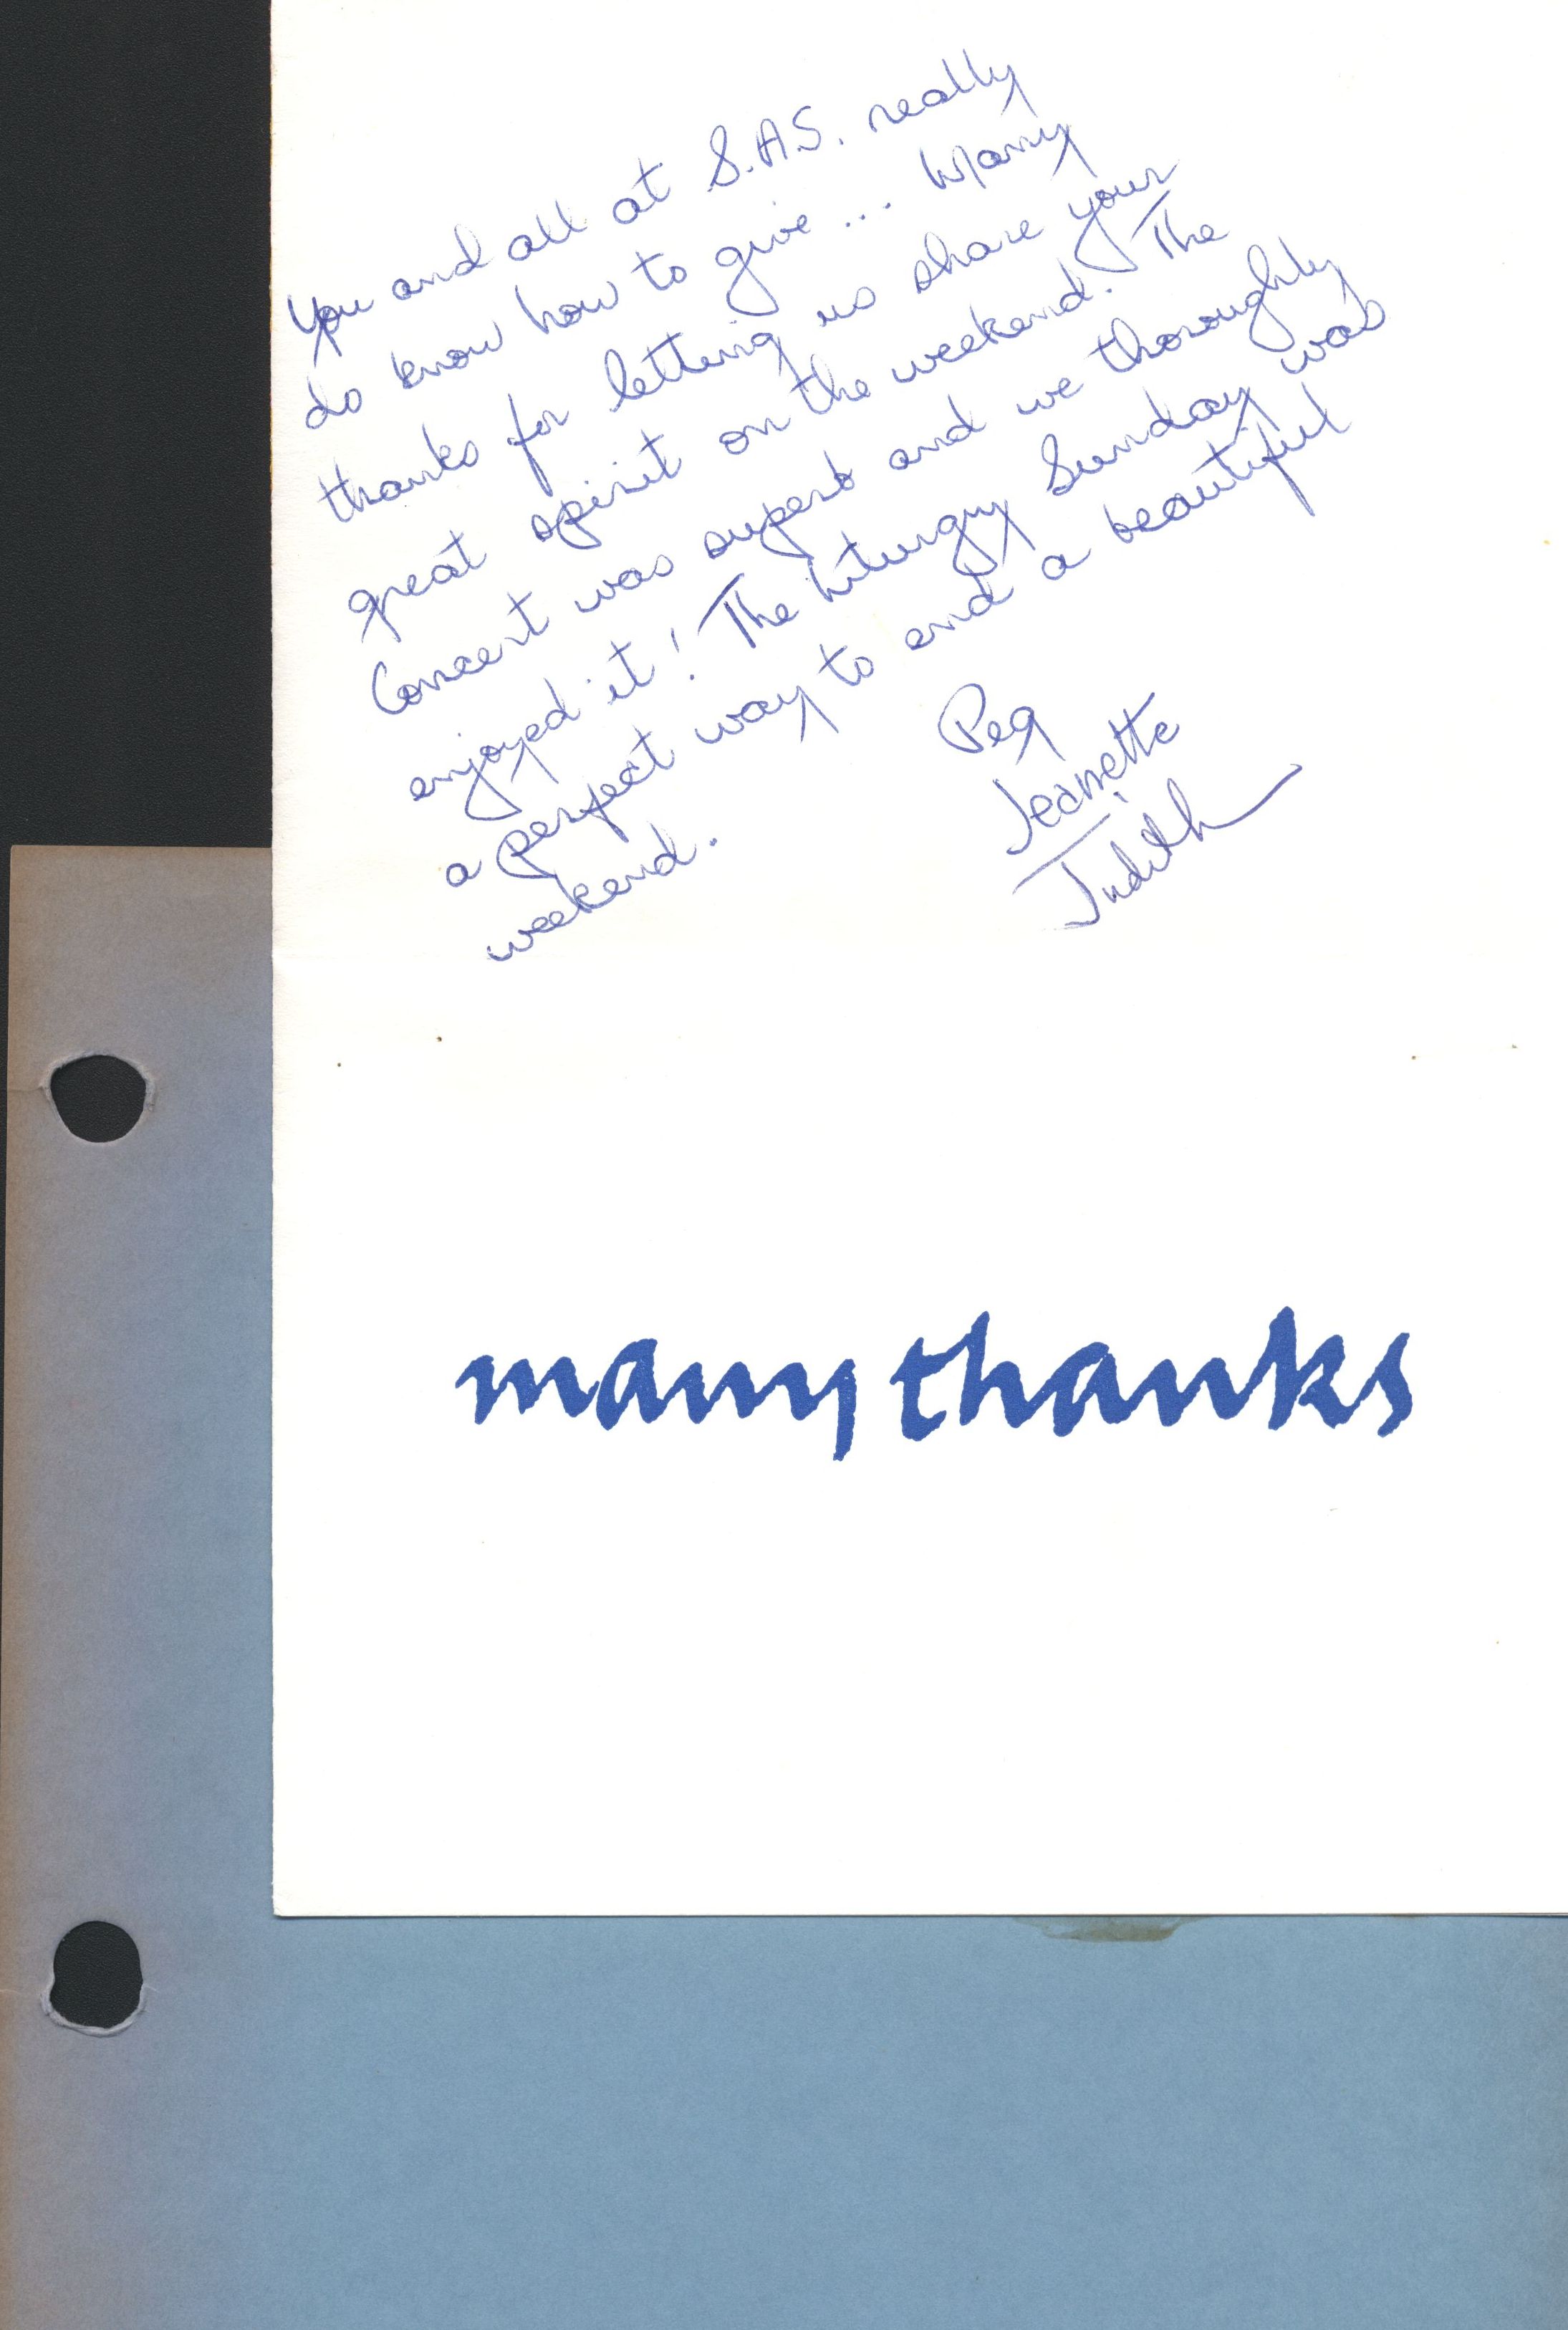 You and all at S.A.S. really
do know how to give ... Many
thanks for letting us share your
great spirit on the weekend. The
Concert was superb and we thoroughly
enjoyed it! The Liturgy Sunday was
a perfect way to end a beautiful
weekend.
Peg
Jeanette
Judith
many thanks